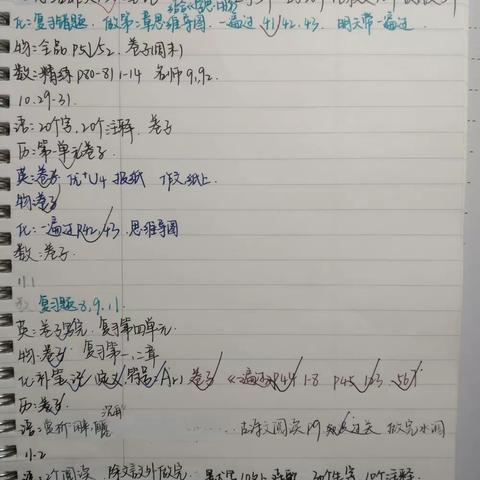 化:复习错题,做第二章思维导图,一遍过 41,42,43. 明天带一遍过
物:全品 P51,52. 卷子(周末)
数:精练 P80-81 1-14 名师 91,92.
10.29-31.
语:20个字,20个注释,卷子
历:第一单元卷子.
英:卷子 优+U4 报纸 作文纸上.
物:卷子
化:一遍过P42,43.思维导图
数:卷子.
11.1
复习题8,9,11.
英:卷子写完,复习第四单元.
物:卷子 复习第一,二章
化:补笔记 (定义,符号:Ar) 卷子 《一遍过》P44 1-8 P45 1-3
历:卷子.
语:赏析 古诗文阅读 P9 做完
11.2
语:2个阅读 除文言文外做完 20个生字 10个注释.